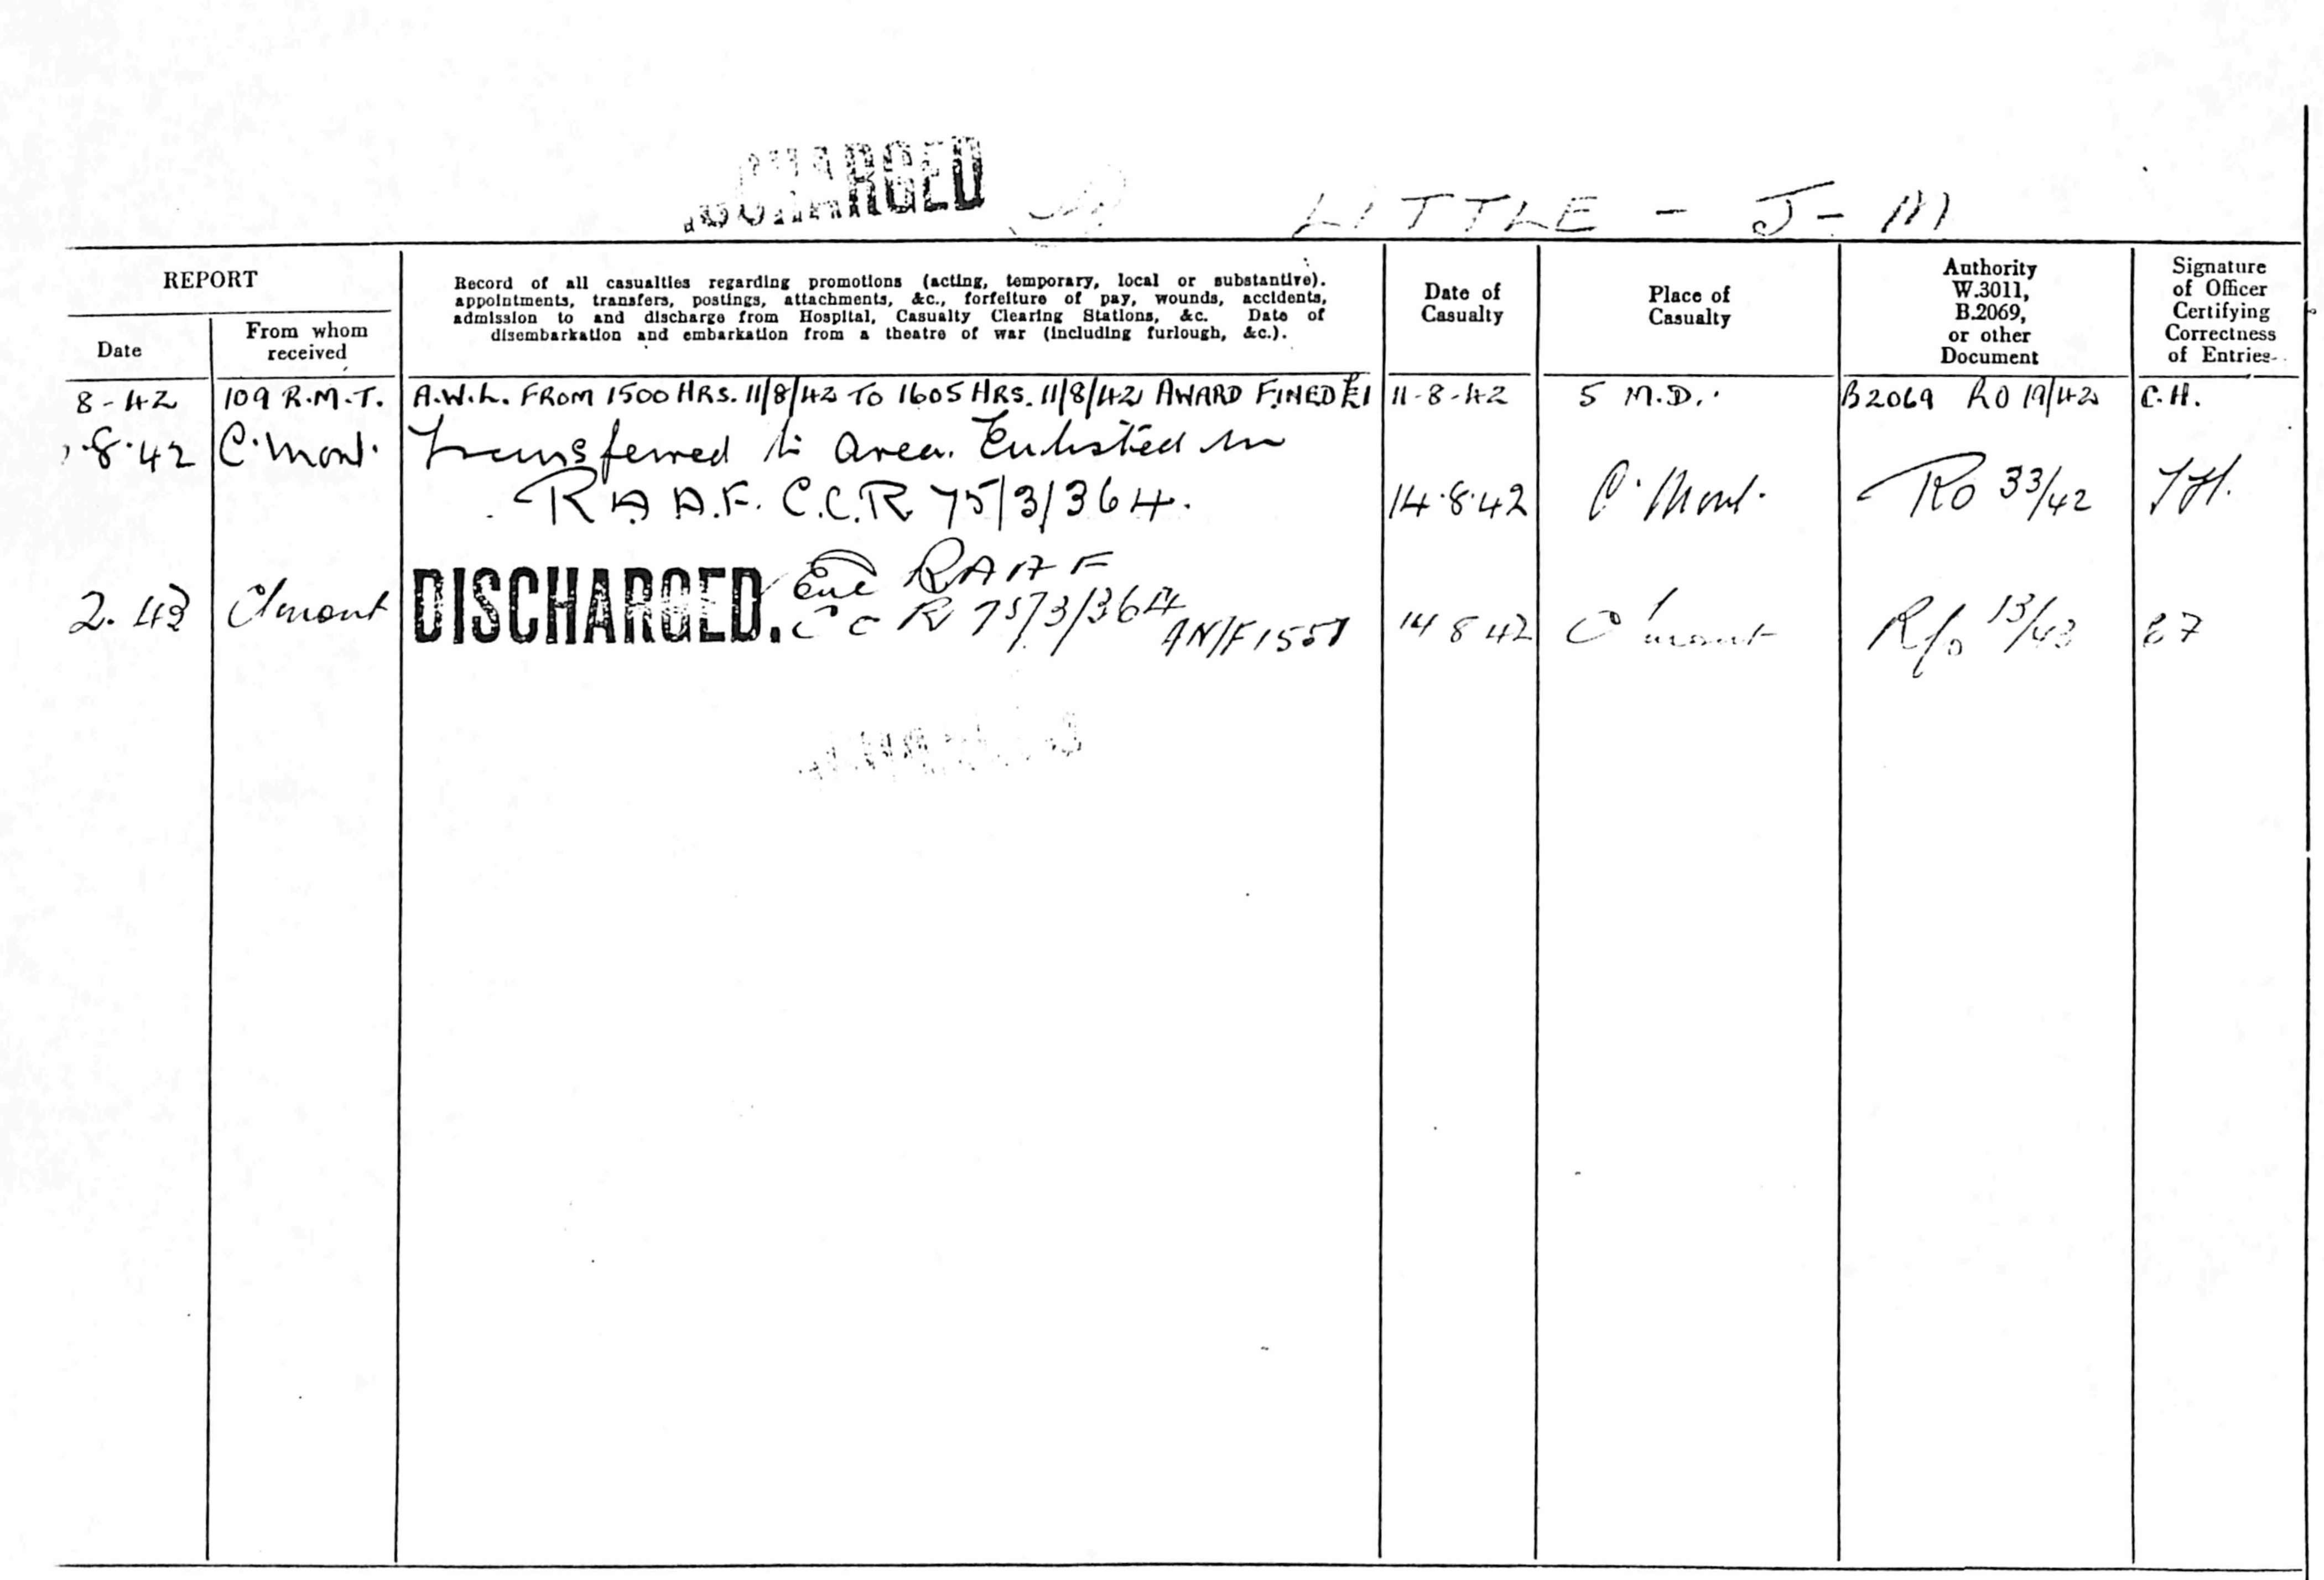 DISCHARGED
LITTLE - J - M
REPORT
Date
From whom
received
Record of all casualties regarding promotions (acting, temporary, local or substantive).
appointments, transfers, postings, attachments, &c., forfeiture of pay, wounds, accidents,
admission to and discharge from Hospital, Casualty Clearing Stations, &c. Date of
disembarkation and embarkation from a theatre of war (including furlough, &c.).
Date of
Casualty
Place of
Casualty
Authority
W.3011,
B.2069,
or other
Document
Signature
of Officer
Certifying
Correctness
of Entries
8-42 109 R.M.T. A.W.L. FROM 1500 HRS. 11/8/42 TO 1605 HRS. 11/8/42 AWARD FINED £1 11-8-42 5 M.D. B2069 RO 19/42 C.H.
.8.42 C'Mont. Transferred to Area. Enlisted in
R A A.F. C.C.R 75/3/364. 14.8.42 C'Mont. RO 33/42
2.43 C'mont DISCHARGED. Enl RAAF
C C R 75/3/364 14 8 42 C'mont R/o 13/43